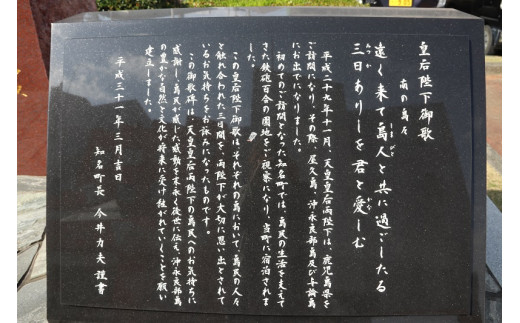 皇后陛下御歌
南の島々
遠く来て島人と共に過ごしたる
三日ありしを君と愛しむ
みつか
しまびと
を
平成二十九年十一月、天皇皇后両陛下は、鹿児島県を
ご訪問になり、その際、屋久島、沖永良部島及び与論島
にお出でになりました。
初めてのご訪問となった知名町では、島民の生活を支えて
きた鉄砲百合の圃地をご視察になり、当町に宿泊されま
した。
この皇后陛下御歌は、それぞれの島において、島民の人々
と触れ合われた三日間を、両陛下が大切に思い出とされて
いるお気持ちをお詠みになったものです。
この御歌碑は、天皇皇后両陛下の島民へのお気持ちに
感謝し、島民が感じた感動を末永く後世に伝え、沖永良部島
の豊かな自然と文化が将来に受け継がれていくことを願い
建立しました。
平成三十一年三月吉日
知名町長 今井力夫 謹書